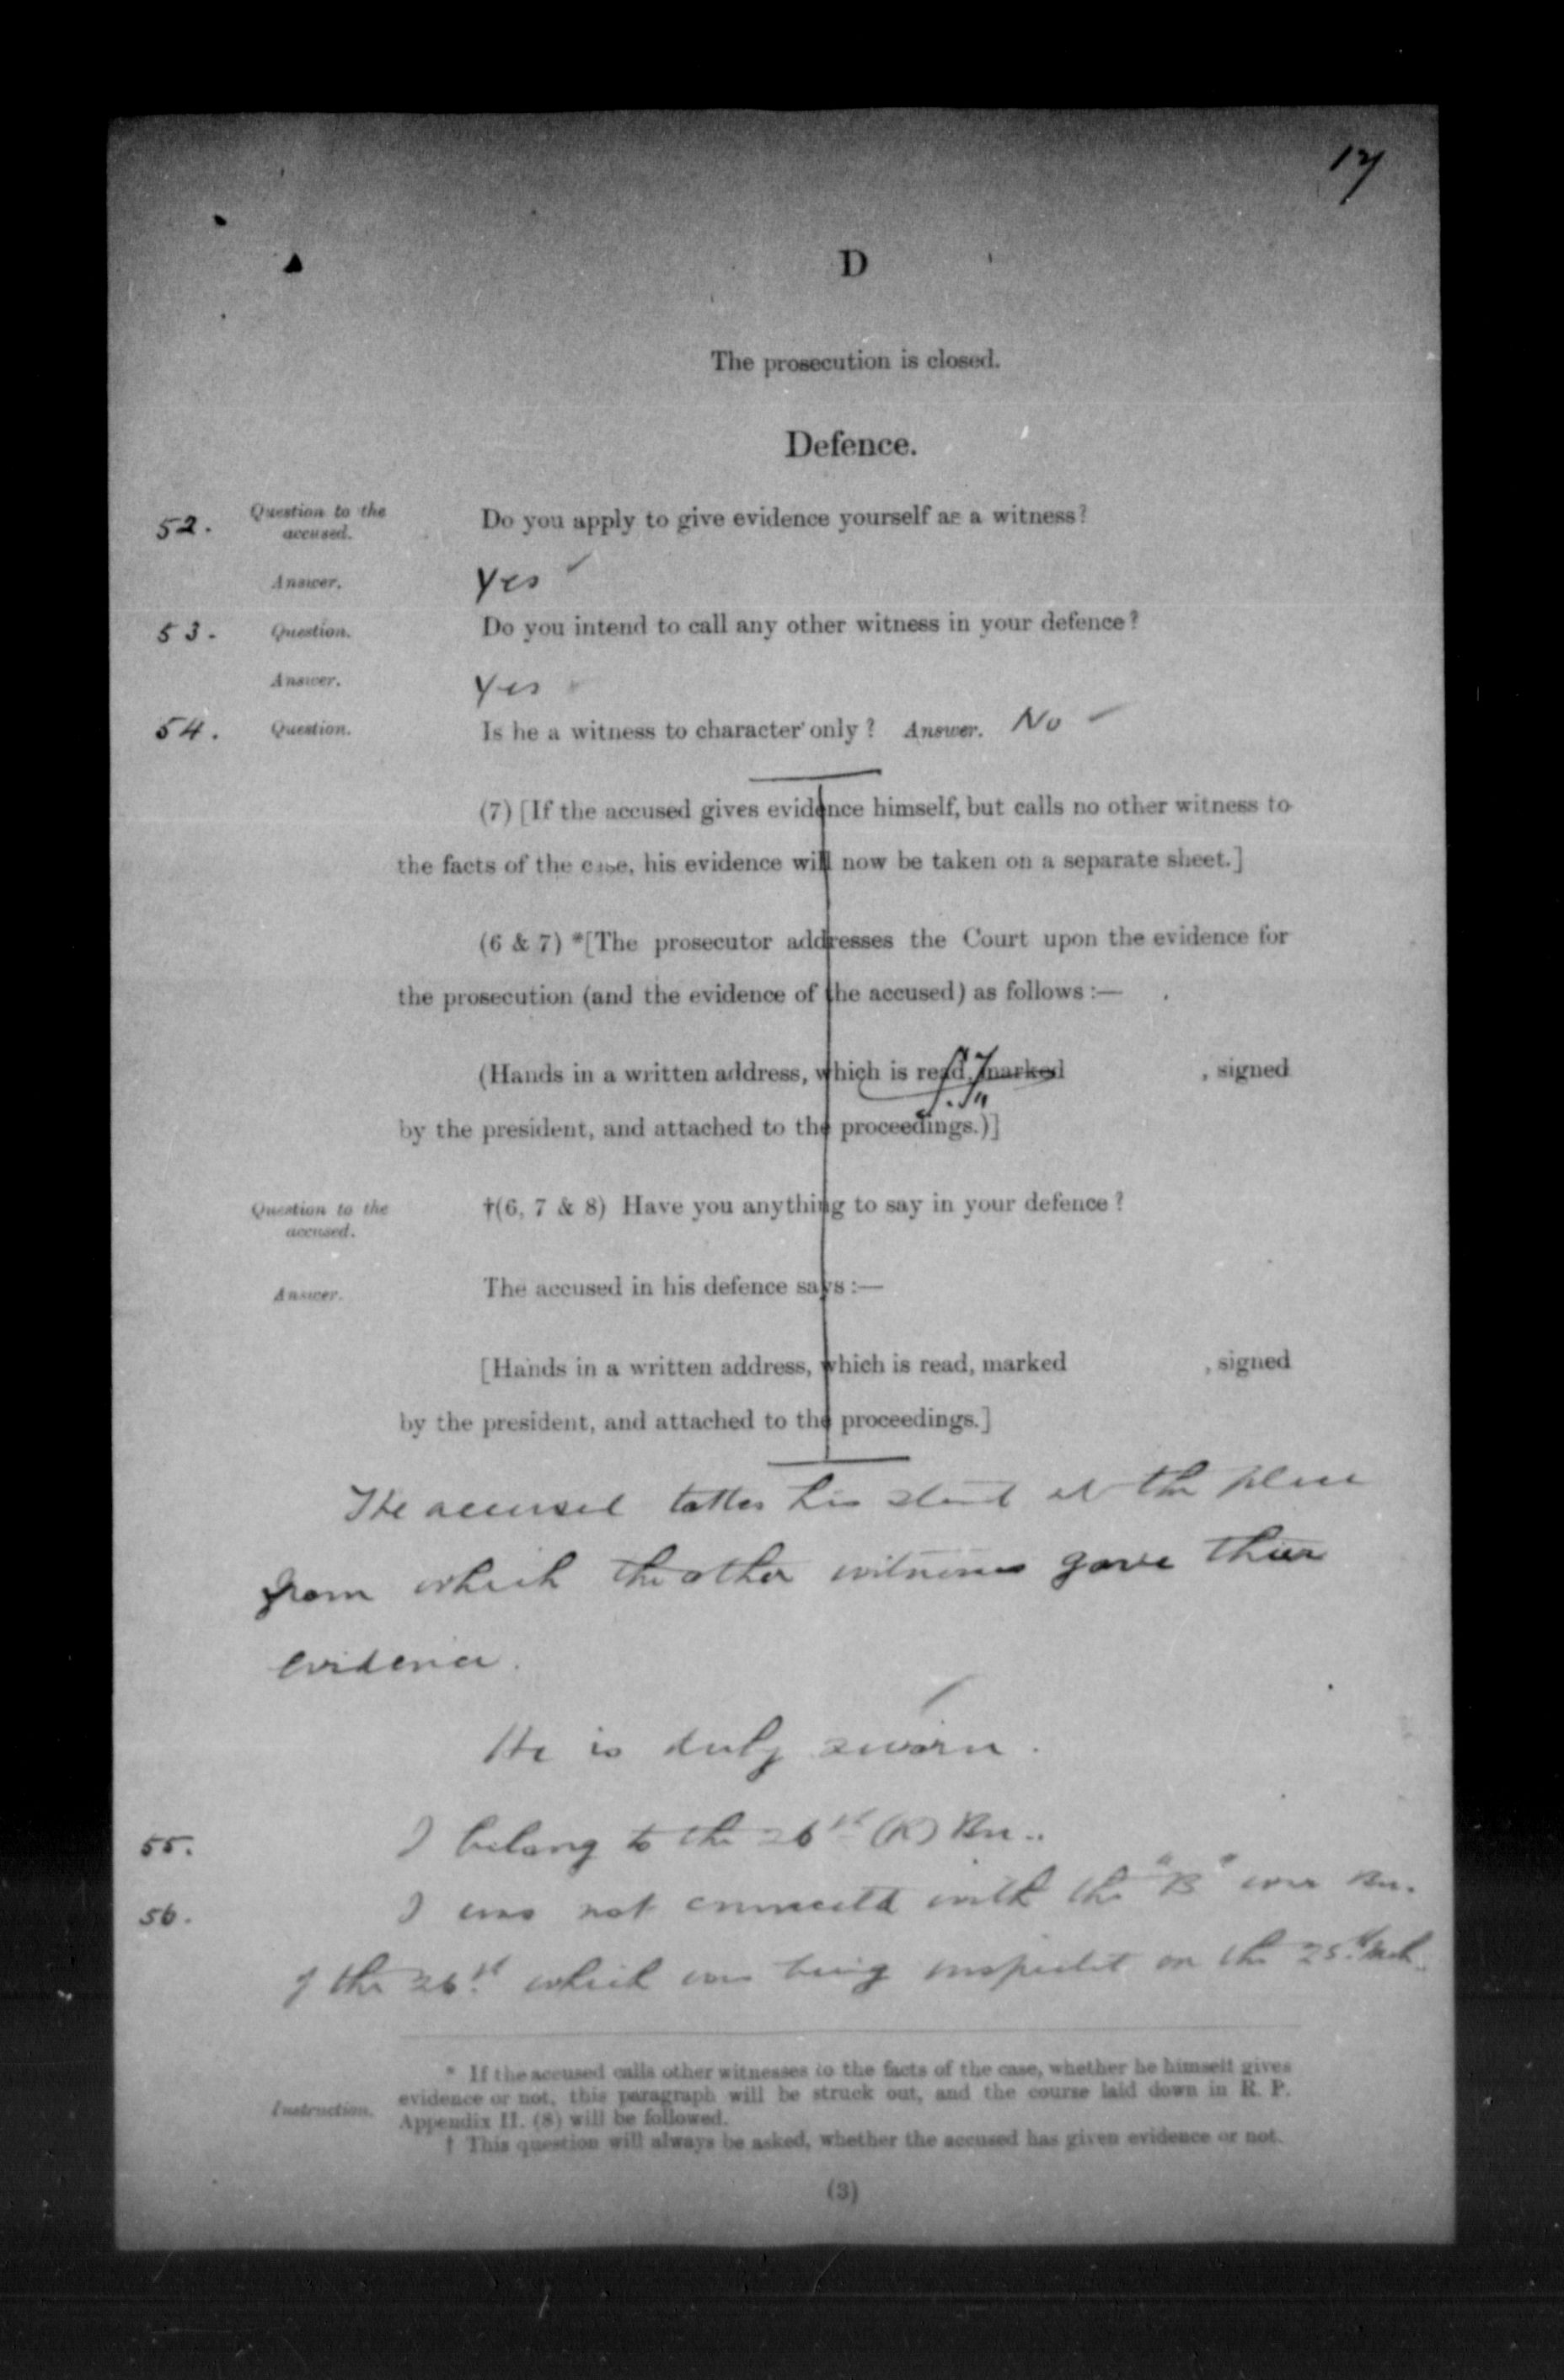 17
D
The prosecution is closed.
Defence.
52. Question to the accused. Do you apply to give evidence yourself as a witness?
Answer. Yes
53. Question. Do you intend to call any other witness in your defence?
Answer. Yes
54. Question. Is he a witness to character only? Answer. No
(7) [If the accused gives evidence himself, but calls no other witness to
the facts of the case, his evidence will now be taken on a separate sheet.]
(6 & 7) *[The prosecutor addresses the Court upon the evidence for
the prosecution (and the evidence of the accused) as follows :—
(Hands in a written address, which is read, marked , signed
by the president, and attached to the proceedings.)]
Question to the accused. †(6, 7 & 8) Have you anything to say in your defence?
Answer. The accused in his defence says :—
[Hands in a written address, which is read, marked , signed
by the president, and attached to the proceedings.]
The accused takes his stand at the place
from which the other witnesses gave their
evidence.
He is duly sworn.
55. I belong to the 26th (R) Bn..
56. I was not connected with the "B" Bn.
of the 26th which was being inspected on the 25th
* If the accused calls other witnesses to the facts of the case, whether he himself gives
Instruction. evidence or not, this paragraph will be struck out, and the course laid down in R. P.
Appendix II. (8) will be followed.
† This question will always be asked, whether the accused has given evidence or not.
(3)